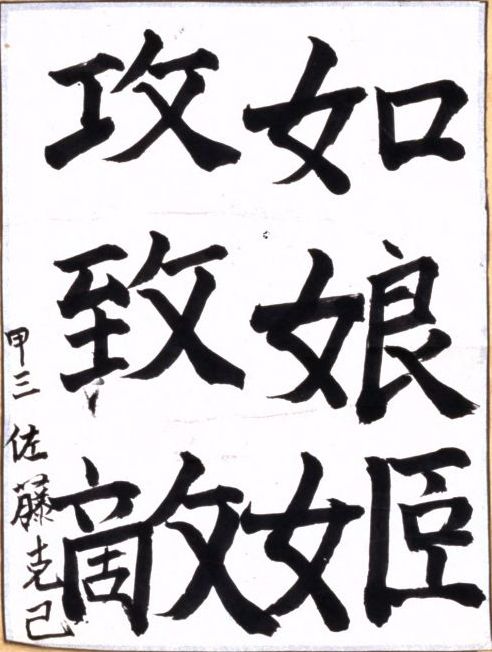 如娘姫
攻致敵
甲三 佐藤克己